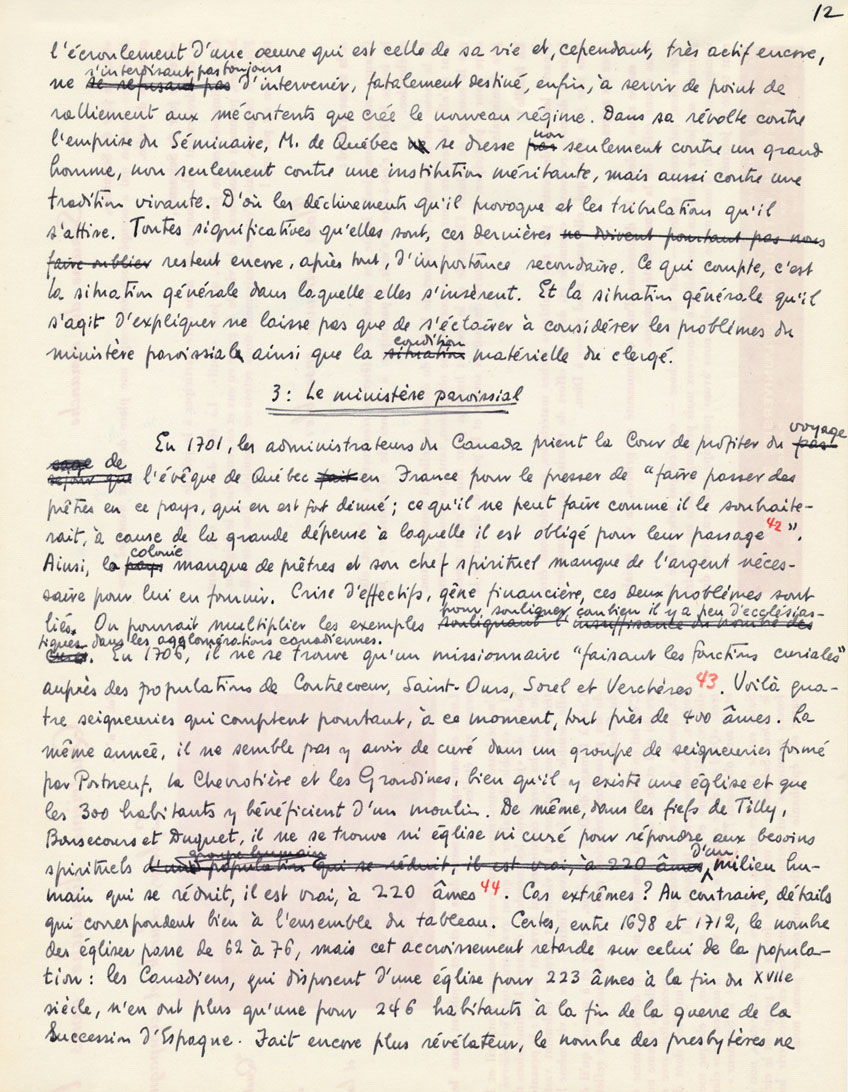 12
l'écroulement d'une œuvre qui est celle de sa vie et, cependant, très actif encore,
s'interdisant pas toujours
ne se refusant pas d'intervenir, fatalement destiné, enfin, à servir de point de
ralliement aux mécontents que crée le nouveau régime. Dans sa révolte contre
non
l'emprise du Séminaire, M. de Québec ne se dresse pas seulement contre un grand
homme, non seulement contre une institution méritante, mais aussi contre une
tradition vivante. D'où les déchirements qu'il provoque et les tribulations qu'il
s'attire. Toutes significatives qu'elles sont, ces dernières ne doivent pourtant pas nous
faire oublier restent encore, après tout, d'importance secondaire. Ce qui compte, c'est
la situation générale dans laquelle elles s'insèrent. Et la situation générale qu'il
s'agit d'expliquer ne laisse pas que de s'éclairer à considérer les problèmes du
condition
ministère paroissial ainsi que la situation matérielle du clergé.
3: Le ministère paroissial
voyage
En 1701, les administrateurs du Canada prient la Cour de profiter du pas-
sage de
séjour que l'évêque de Québec fait en France pour le presser de "faire passer des
prêtres en ce pays, qui en est fort dénué; ce qu'il ne peut faire comme il le souhaite-
rait, à cause de la grande dépense à laquelle il est obligé pour leur passage 42".
colonie
Ainsi, la pays manque de prêtres et son chef spirituel manque de l'argent néces-
saire pour lui en fournir. Crise d'effectifs, gêne financière, ces deux problèmes sont
pour souligner combien il y a peu d'ecclésias-
liés. On pourrait multiplier les exemples soulignant l'insuffisance du nombre des
tiques dans les agglomérations canadiennes.
curés. En 1706, il ne se trouve qu'un missionnaire "faisant les fonctions curiales"
auprès des populations de Contrecoeur, Saint-Ours, Sorel et Verchères 43. Voilà qua-
tre seigneuries qui comptent pourtant, à ce moment, tout près de 400 âmes. La
même année, il ne semble pas y avoir de curé dans un groupe de seigneuries formé
par Portneuf, la Chevrotière et les Grondines, bien qu'il y existe une église et que
les 300 habitants y bénéficient d'un moulin. De même, dans les fiefs de Tilly,
Bonsecours et Duquet, il ne se trouve ni église ni curé pour répondre aux besoins
groupe humain d'un
spirituels d'une population qui se réduit, il est vrai, à 220 âmes milieu hu-
main qui se réduit, il est vrai, à 220 âmes 44. Cas extrêmes? Au contraire, détails
qui correspondent bien à l'ensemble du tableau. Certes, entre 1698 et 1712, le nombre
des églises passe de 62 à 76, mais cet accroissement retarde sur celui de la popula-
tion: les Canadiens, qui disposent d'une église pour 223 âmes à la fin du XVIIe
siècle, n'en ont plus qu'une pour 246 habitants à la fin de la guerre de la
Succession d'Espagne. Fait encore plus révélateur, le nombre des presbytères ne